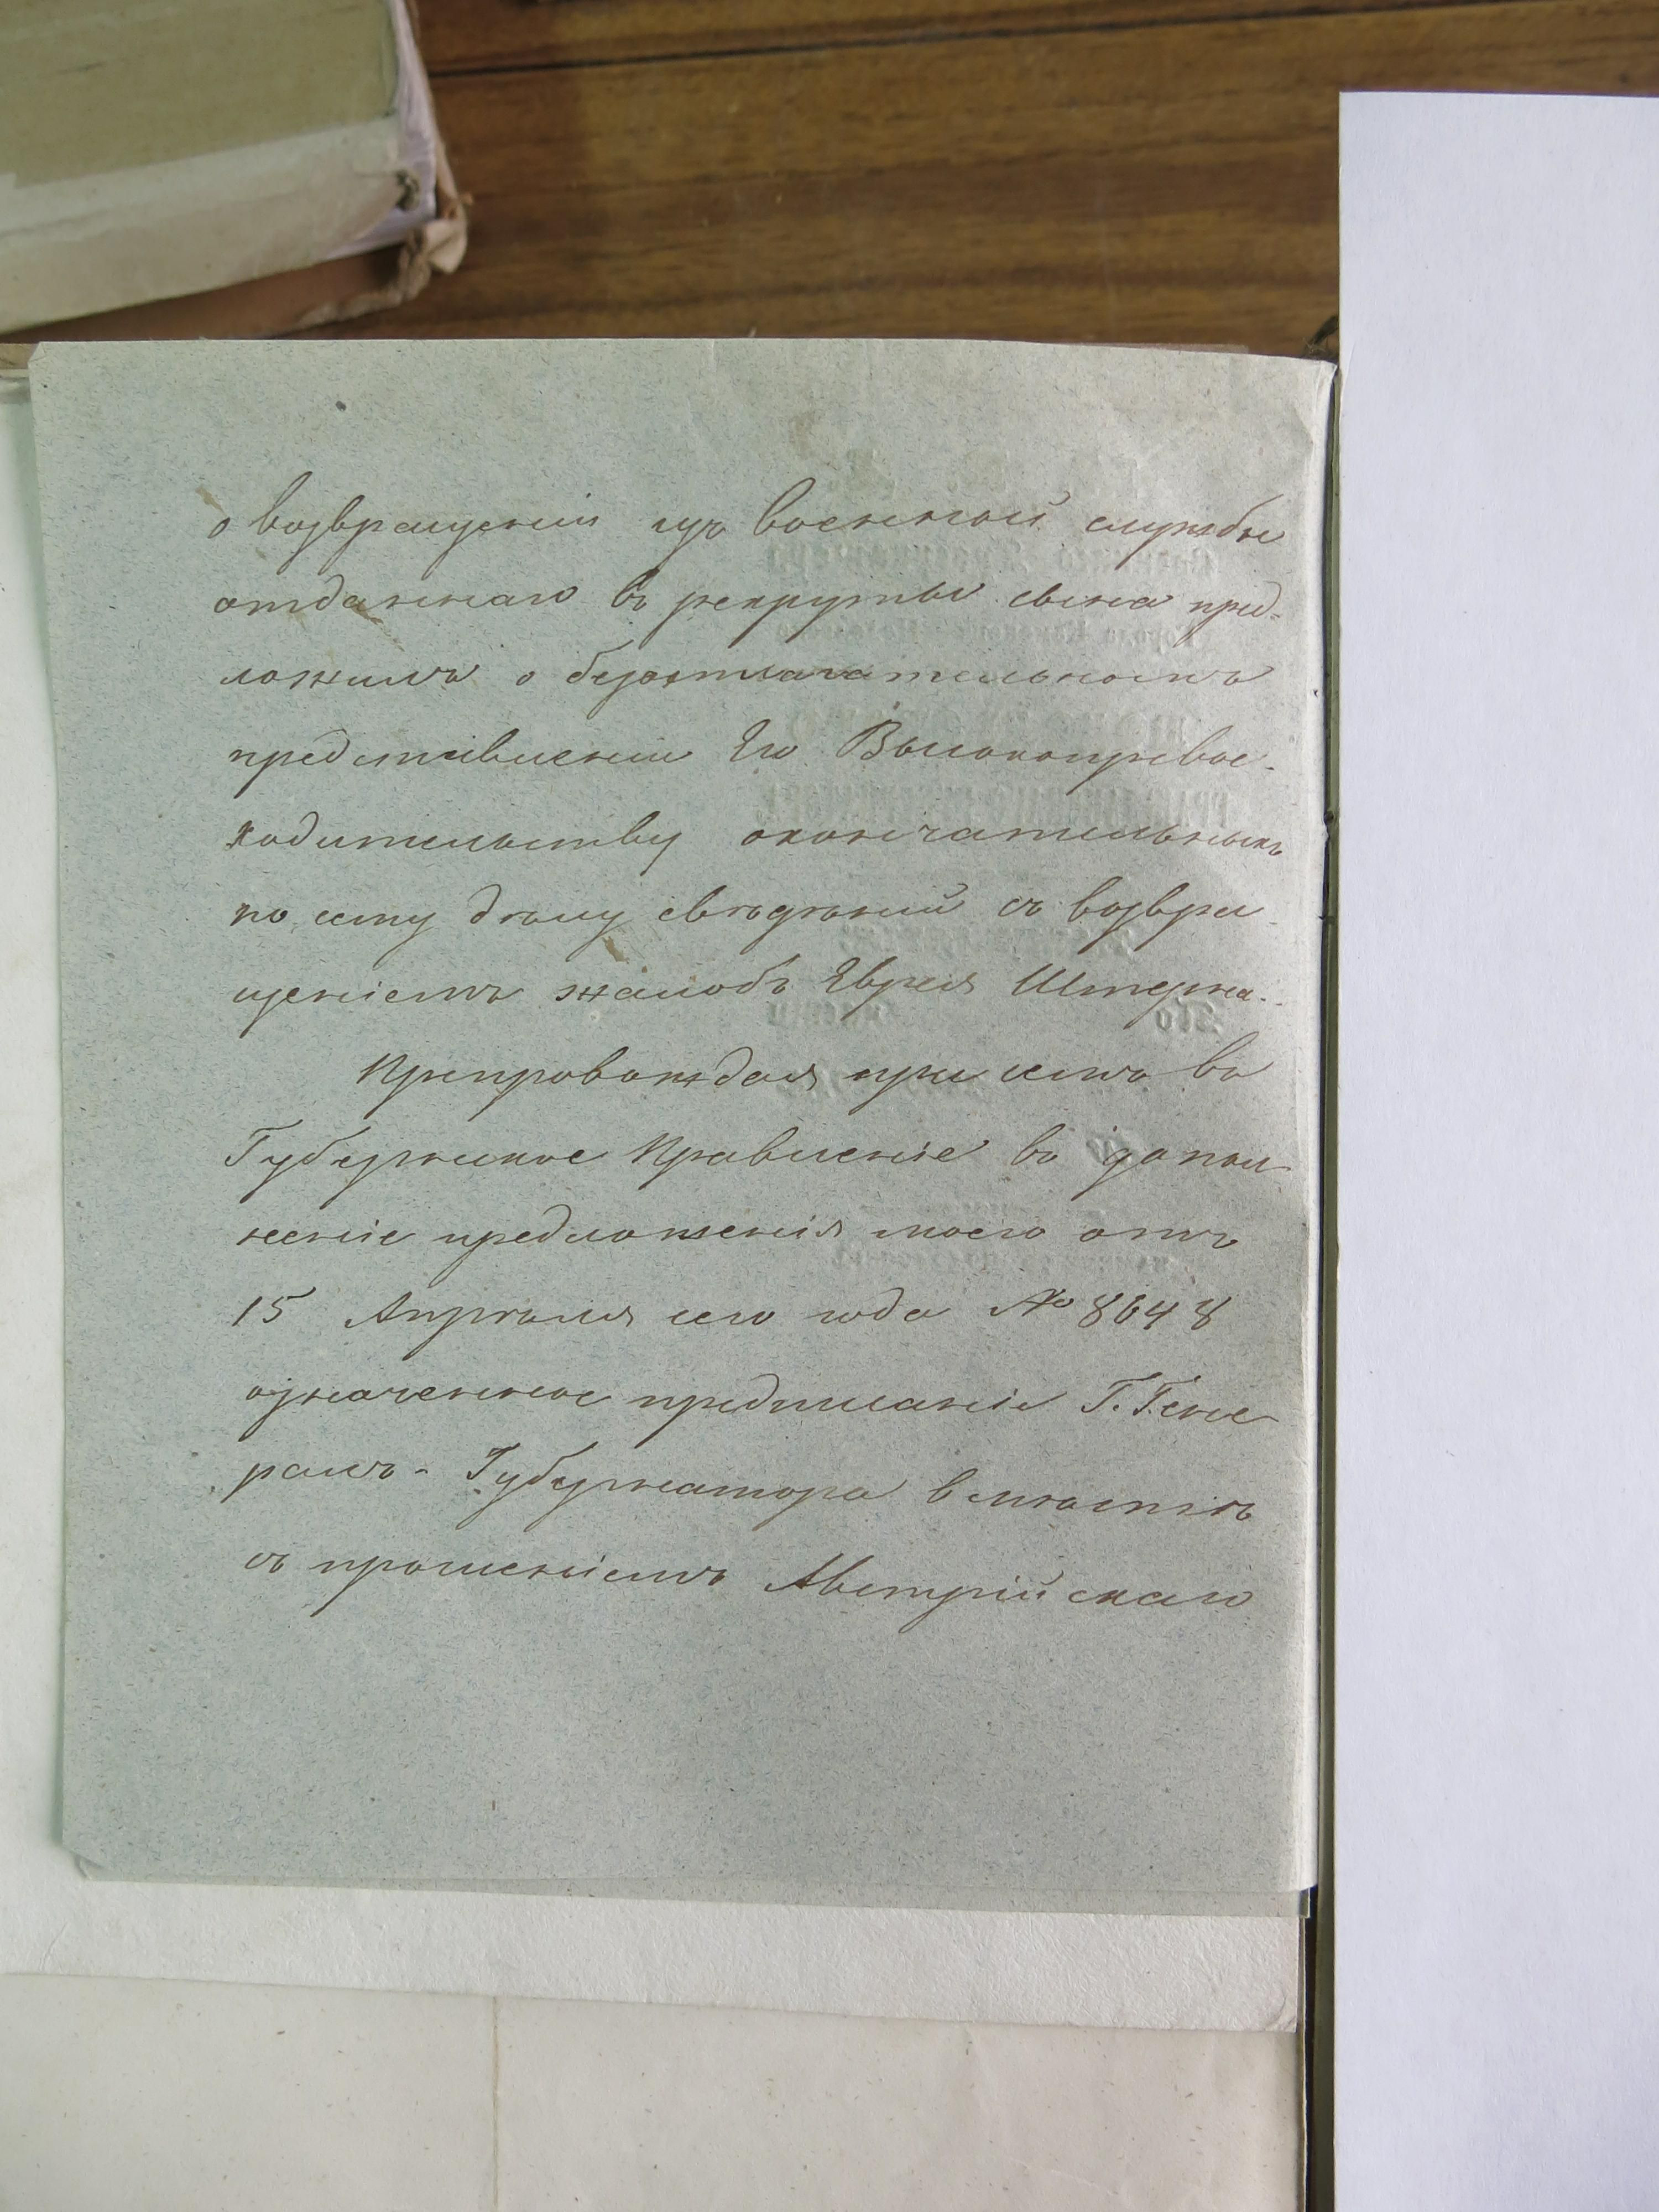 о возвращеніи изъ военной службы
отданнаго въ рекруты сына пред-
ложилъ о безотлагательномъ
представленіи Его Высокопревос-
ходительству окончательныхъ
по сему дѣлу свѣдѣній съ возвра-
щеніемъ жалобъ Еврея Штерна.
Препровождая при семъ въ
Губернское Правленіе въ допол-
неніе предложенія моего отъ
15 Апрѣля сего года № 8648
означенное предписаніе Г. Гене-
ралъ-Губернатора вмѣстѣ
съ прошеніемъ Австрійскаго